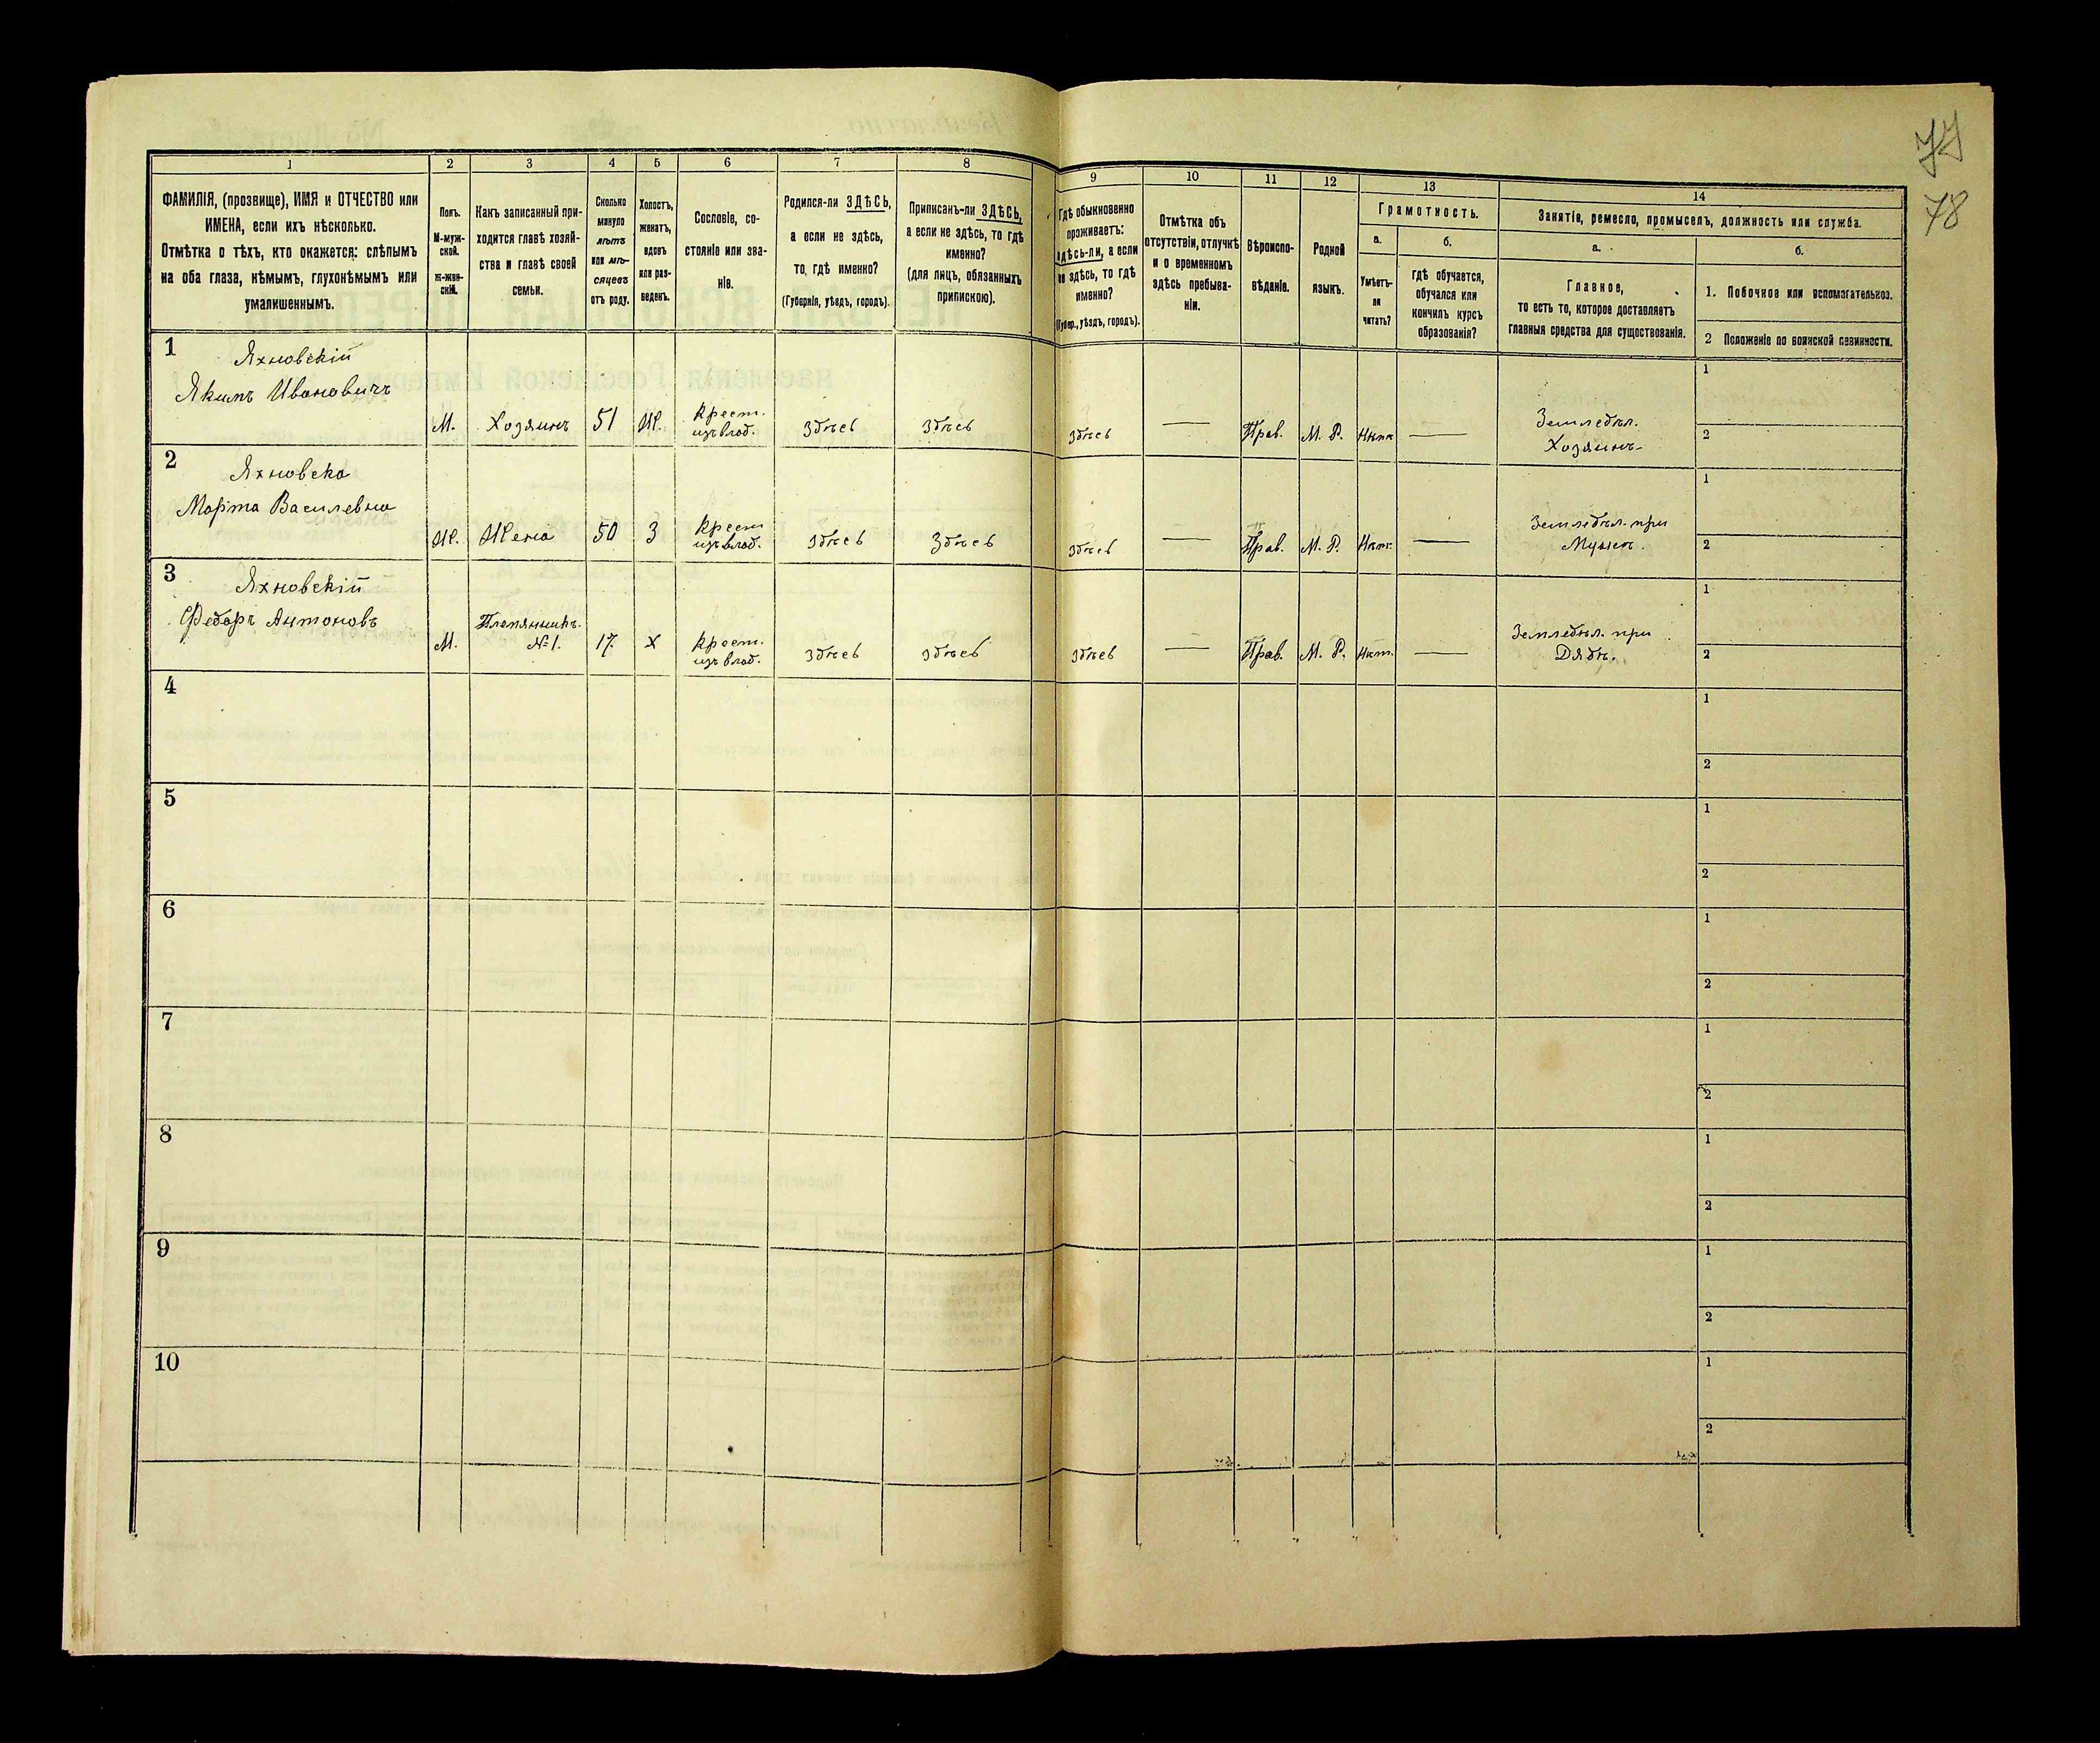 77
78
1
2
3
4
5
6
7
8
9
10
11
12
13
14
ФАМИЛІЯ, (прозвище), ИМЯ и ОТЧЕСТВО или
ИМЕНА, если ихъ нѣсколько.
Отмѣтка о тѣхъ, кто окажется: слѣпымъ
на оба глаза, нѣмымъ, глухонѣмымъ или
умалишеннымъ.
Полъ.
М-муж-
ской.
Ж-жен-
скій.
Какъ записанный при-
ходится главѣ хозяй-
ства и главѣ своей
семьи.
Сколько
минуло
лѣтъ
или мѣ-
сяцевъ
отъ роду.
Холостъ,
женатъ,
вдовъ
или раз-
веденъ.
Сословіе, со-
стояніе или зва-
ніе.
Родился-ли ЗДѢСЬ,
а если не здѣсь,
то, гдѣ именно?
(Губернія, уѣздъ, городъ).
Приписанъ-ли ЗДѢСЬ,
а если не здѣсь, то гдѣ
именно?
(для лицъ, обязанныхъ
припискою).
Гдѣ обыкновенно
проживаетъ:
здѣсь-ли, а если
не здѣсь, то гдѣ
именно?
(Губер., уѣздъ, городъ).
Отмѣтка объ
отсутствіи, отлучкѣ
и о временномъ
здѣсь пребыва-
ніи.
Вѣроиспо-
вѣданіе.
Родной
языкъ.
Грамотность.
а.
б.
Умѣетъ-
ли
читать?
Гдѣ обучается,
обучался или
кончилъ курсъ
образованія?
Занятіе, ремесло, промыселъ, должность или служба.
а.
б.
Главное,
то есть то, которое доставляетъ
главныя средства для существованія.
1. Побочное или вспомогательное.
2 Положеніе по воинской повинности.
1
Яхновскій
Якимъ Ивановичъ
М.
Хозяинъ
51
Ж.
Крест.
изъ влад.
Здѣсь
Здѣсь
Здѣсь
—
Прав.
М. Р.
Нѣтъ
—
Земледѣл.
Хозяинъ
1
2
2
Яхновска
Марта Василевна
Ж.
Жена
50
З
Крест
изъ влад.
Здѣсь
Здѣсь
Здѣсь
—
Прав.
М. Р.
Нѣтъ
—
Земледѣл. при
Мужѣ.
1
2
3
Яхновскій
Федоръ Антоновъ
М.
Племянникъ.
№1.
17.
Х
Крест.
изъ влад.
Здѣсь
Здѣсь
Здѣсь
—
Прав.
М. Р.
Нѣт.
—
Земледѣл. при
Дядѣ.
1
2
4
1
2
5
1
2
6
1
2
7
1
2
8
1
2
9
1
2
10
1
2